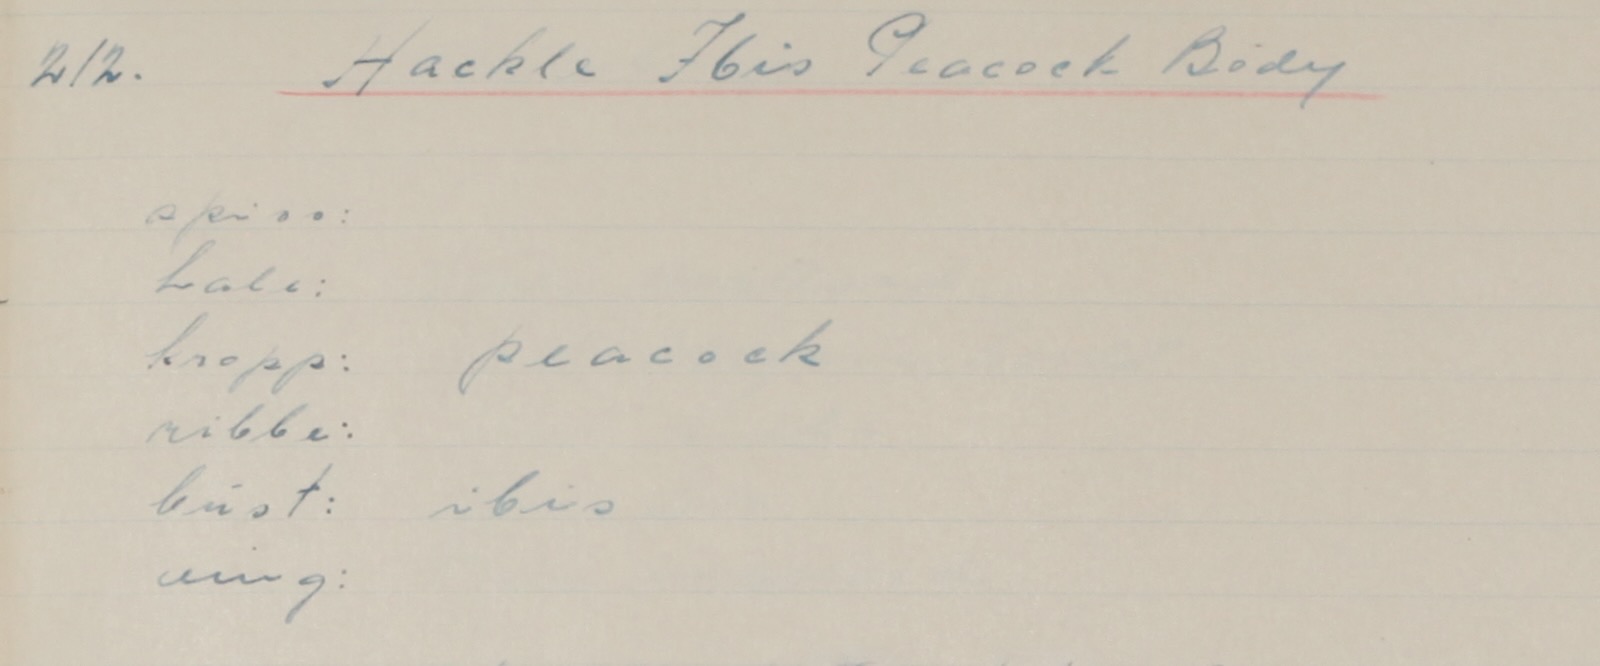 212. Hackle Ibis Peacock Body
spiss:
hale:
kropp: peacock
ribbe:
bust: ibis
ving: